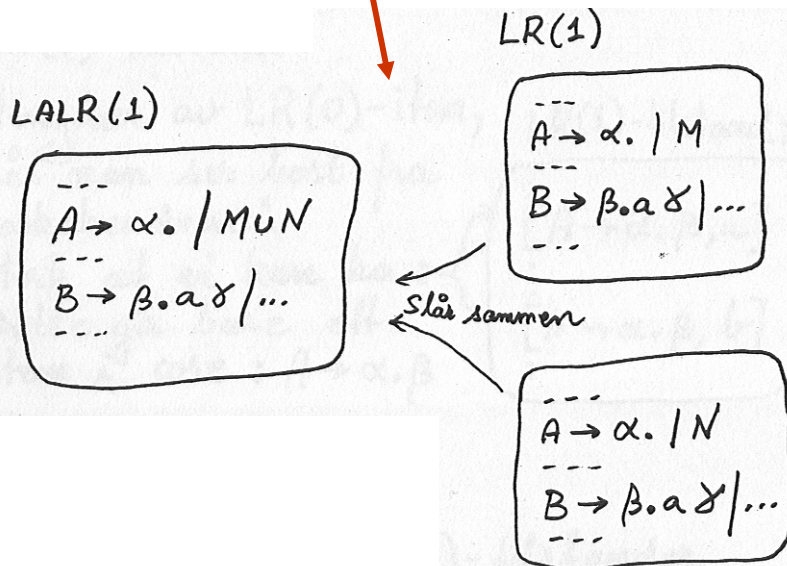 LALR(1)
---
A → α. / M∪N
---
B → β.a γ / ...
---
LR(1)
---
A → α. / M
---
B → β.a γ / ...
---
Slår sammen
---
A → α. / N
---
B → β.a γ / ...
---